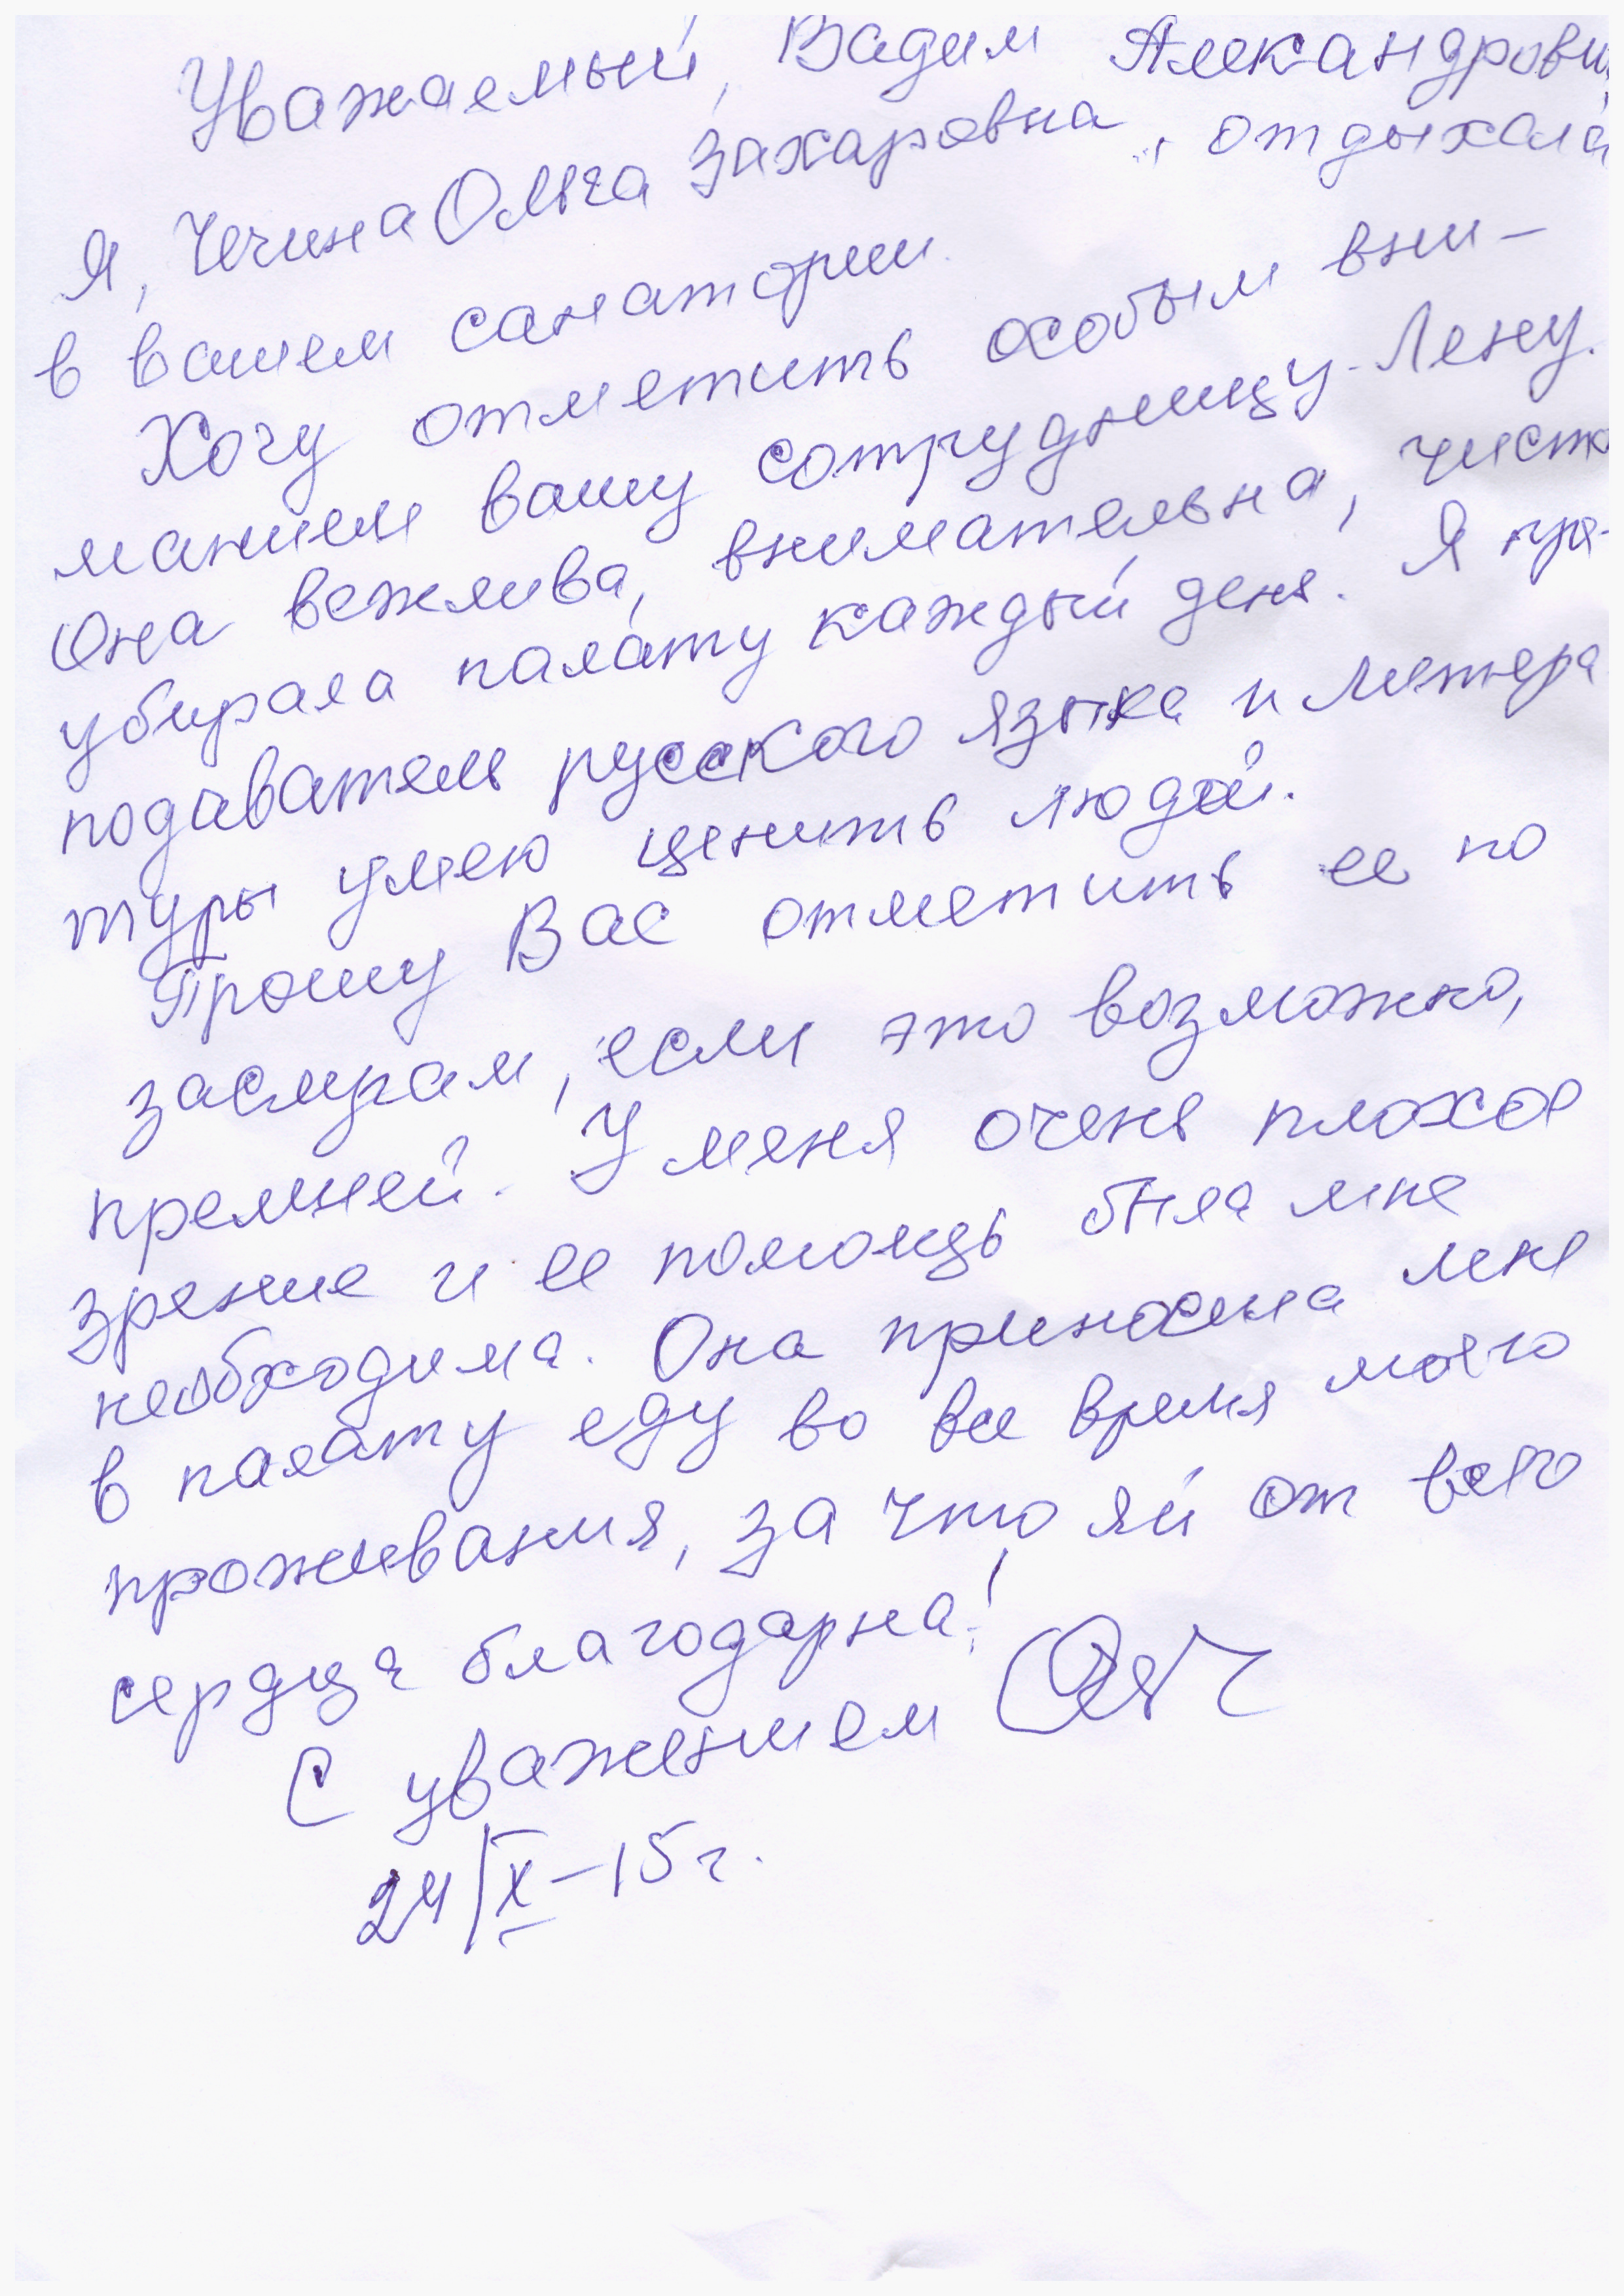 Уважаемый, Вадим Александрови
Я, Чечина Ольга Захаровна, отдыхала
в вашем санатории.
Хочу отметить особым вни-
манием вашу сотрудницу-Лену.
Она вежлива, внимательна, чисто
убирала палату каждый день. Я пре-
подаватель русского языка и литера-
туры умею ценить людей.
Прошу Вас отметить ее по
заслугам, если это возможно,
премией. У меня очень плохое
зрение и ее помощь была мне
необходима. Она приносила мне
в палату еду во все время моего
проживания, за что ей от всего
сердца благодарна!
С уважением
24/IX-15г.